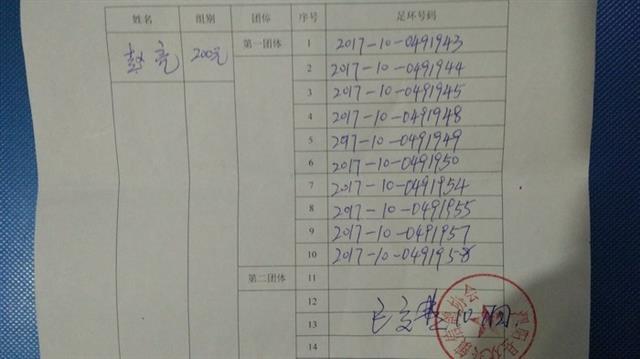 姓名 组别 团体 序号 足环号码
彭亮 200元 第一团体 1 2017-10-0491943
2 2017-10-0491944
3 2017-10-0491945
4 2017-10-0491948
5 2017-10-0491949
6 2017-10-0491950
7 2017-10-0491954
8 2017-10-0491955
9 2017-10-0491957
10 2017-10-0491958
第二团体 11
12
13
14